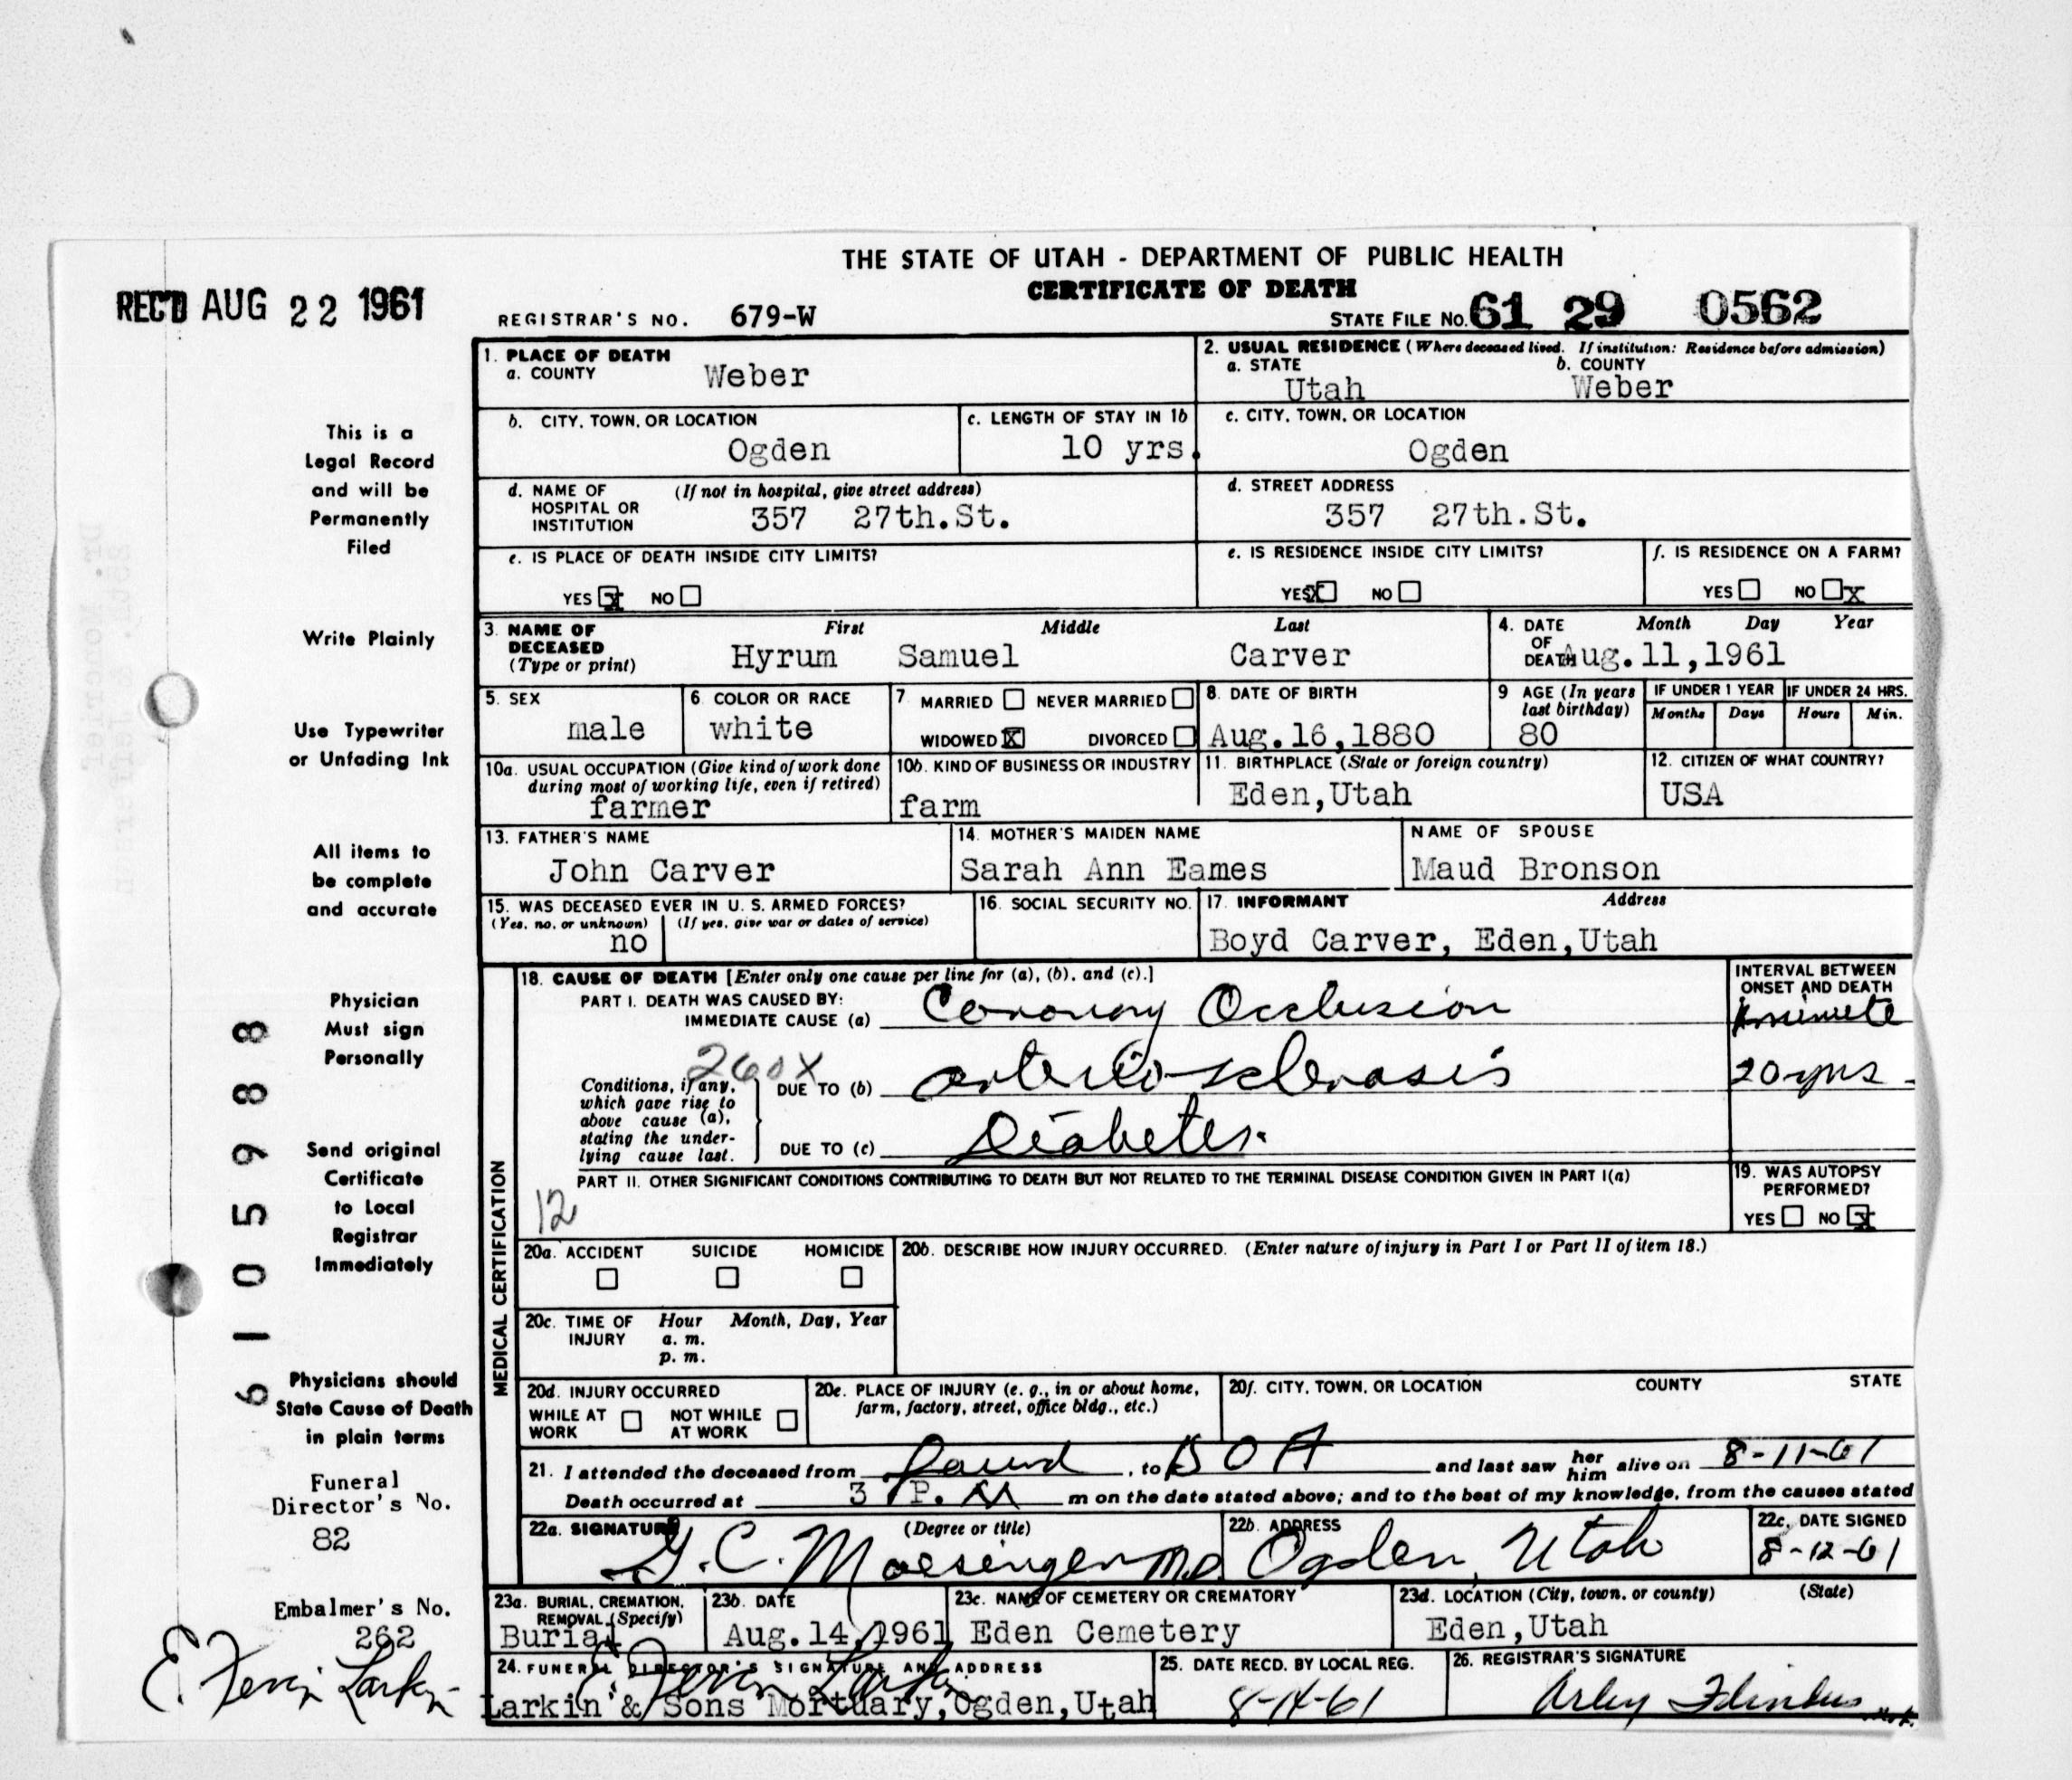 THE STATE OF UTAH - DEPARTMENT OF PUBLIC HEALTH
CERTIFICATE OF DEATH
REC'D AUG 22 1961
REGISTRAR'S NO. 679-W
STATE FILE NO. 61 29 0562
1. PLACE OF DEATH
a. COUNTY Weber
2. USUAL RESIDENCE (Where deceased lived. If institution: Residence before admission)
a. STATE Utah b. COUNTY Weber
b. CITY, TOWN, OR LOCATION Ogden
c. LENGTH OF STAY IN 1b 10 yrs.
c. CITY, TOWN, OR LOCATION Ogden
d. NAME OF HOSPITAL OR INSTITUTION (If not in hospital, give street address) 357 27th.St.
d. STREET ADDRESS 357 27th.St.
e. IS PLACE OF DEATH INSIDE CITY LIMITS?
YES X NO
e. IS RESIDENCE INSIDE CITY LIMITS?
YES X NO
f. IS RESIDENCE ON A FARM?
YES NO X
3. NAME OF DECEASED (Type or print) First Middle Last
Hyrum Samuel Carver
4. DATE OF DEATH Month Day Year
Aug.11,1961
5. SEX male
6. COLOR OR RACE white
7 MARRIED NEVER MARRIED
WIDOWED X DIVORCED
8. DATE OF BIRTH Aug.16,1880
9 AGE (In years last birthday) 80
IF UNDER 1 YEAR Months Days
IF UNDER 24 HRS. Hours Min.
10a. USUAL OCCUPATION (Give kind of work done during most of working life, even if retired) farmer
10b. KIND OF BUSINESS OR INDUSTRY farm
11. BIRTHPLACE (State or foreign country) Eden,Utah
12. CITIZEN OF WHAT COUNTRY? USA
13. FATHER'S NAME John Carver
14. MOTHER'S MAIDEN NAME Sarah Ann Eames
NAME OF SPOUSE Maud Bronson
15. WAS DECEASED EVER IN U. S. ARMED FORCES?
(Yes, no, or unknown) (If yes, give war or dates of service)
no
16. SOCIAL SECURITY NO.
17. INFORMANT Address
Boyd Carver, Eden,Utah
MEDICAL CERTIFICATION
18. CAUSE OF DEATH [Enter only one cause per line for (a), (b), and (c).]
PART I. DEATH WAS CAUSED BY:
IMMEDIATE CAUSE (a) Coronary Occlusion
INTERVAL BETWEEN ONSET AND DEATH
260X
Conditions, if any, which gave rise to above cause (a), stating the underlying cause last.
DUE TO (b) arterio-sclerosis 20 yrs.
DUE TO (c) Diabetes.
PART II. OTHER SIGNIFICANT CONDITIONS CONTRIBUTING TO DEATH BUT NOT RELATED TO THE TERMINAL DISEASE CONDITION GIVEN IN PART I(a)
12
19. WAS AUTOPSY PERFORMED?
YES NO X
20a. ACCIDENT SUICIDE HOMICIDE
20b. DESCRIBE HOW INJURY OCCURRED. (Enter nature of injury in Part I or Part II of item 18.)
20c. TIME OF INJURY Hour Month, Day, Year
a. m.
p. m.
20d. INJURY OCCURRED
WHILE AT WORK NOT WHILE AT WORK
20e. PLACE OF INJURY (e. g., in or about home, farm, factory, street, office bldg., etc.)
20f. CITY, TOWN, OR LOCATION COUNTY STATE
21. I attended the deceased from found, to DOA and last saw her him alive on 8-11-61
Death occurred at 3 P. M m on the date stated above; and to the best of my knowledge, from the causes stated
22a. SIGNATURE (Degree or title)
G. C. Moesinger M.D.
22b. ADDRESS Ogden, Utah
22c. DATE SIGNED 8-12-61
23a. BURIAL, CREMATION, REMOVAL (Specify) Burial
23b. DATE Aug.14,1961
23c. NAME OF CEMETERY OR CREMATORY Eden Cemetery
23d. LOCATION (City, town, or county) (State) Eden,Utah
24. FUNERAL DIRECTOR'S SIGNATURE AND ADDRESS
Larkin & Sons Mortuary,Ogden,Utah
25. DATE RECD. BY LOCAL REG. 8-14-61
26. REGISTRAR'S SIGNATURE
This is a
Legal Record
and will be
Permanently
Filed
Write Plainly
Use Typewriter
or Unfading Ink
All items to
be complete
and accurate
Physician
Must sign
Personally
Send original
Certificate
to Local
Registrar
Immediately
Physicians should
State Cause of Death
in plain terms
Funeral
Director's No.
82
Embalmer's No.
262
E. Larkin
6105988